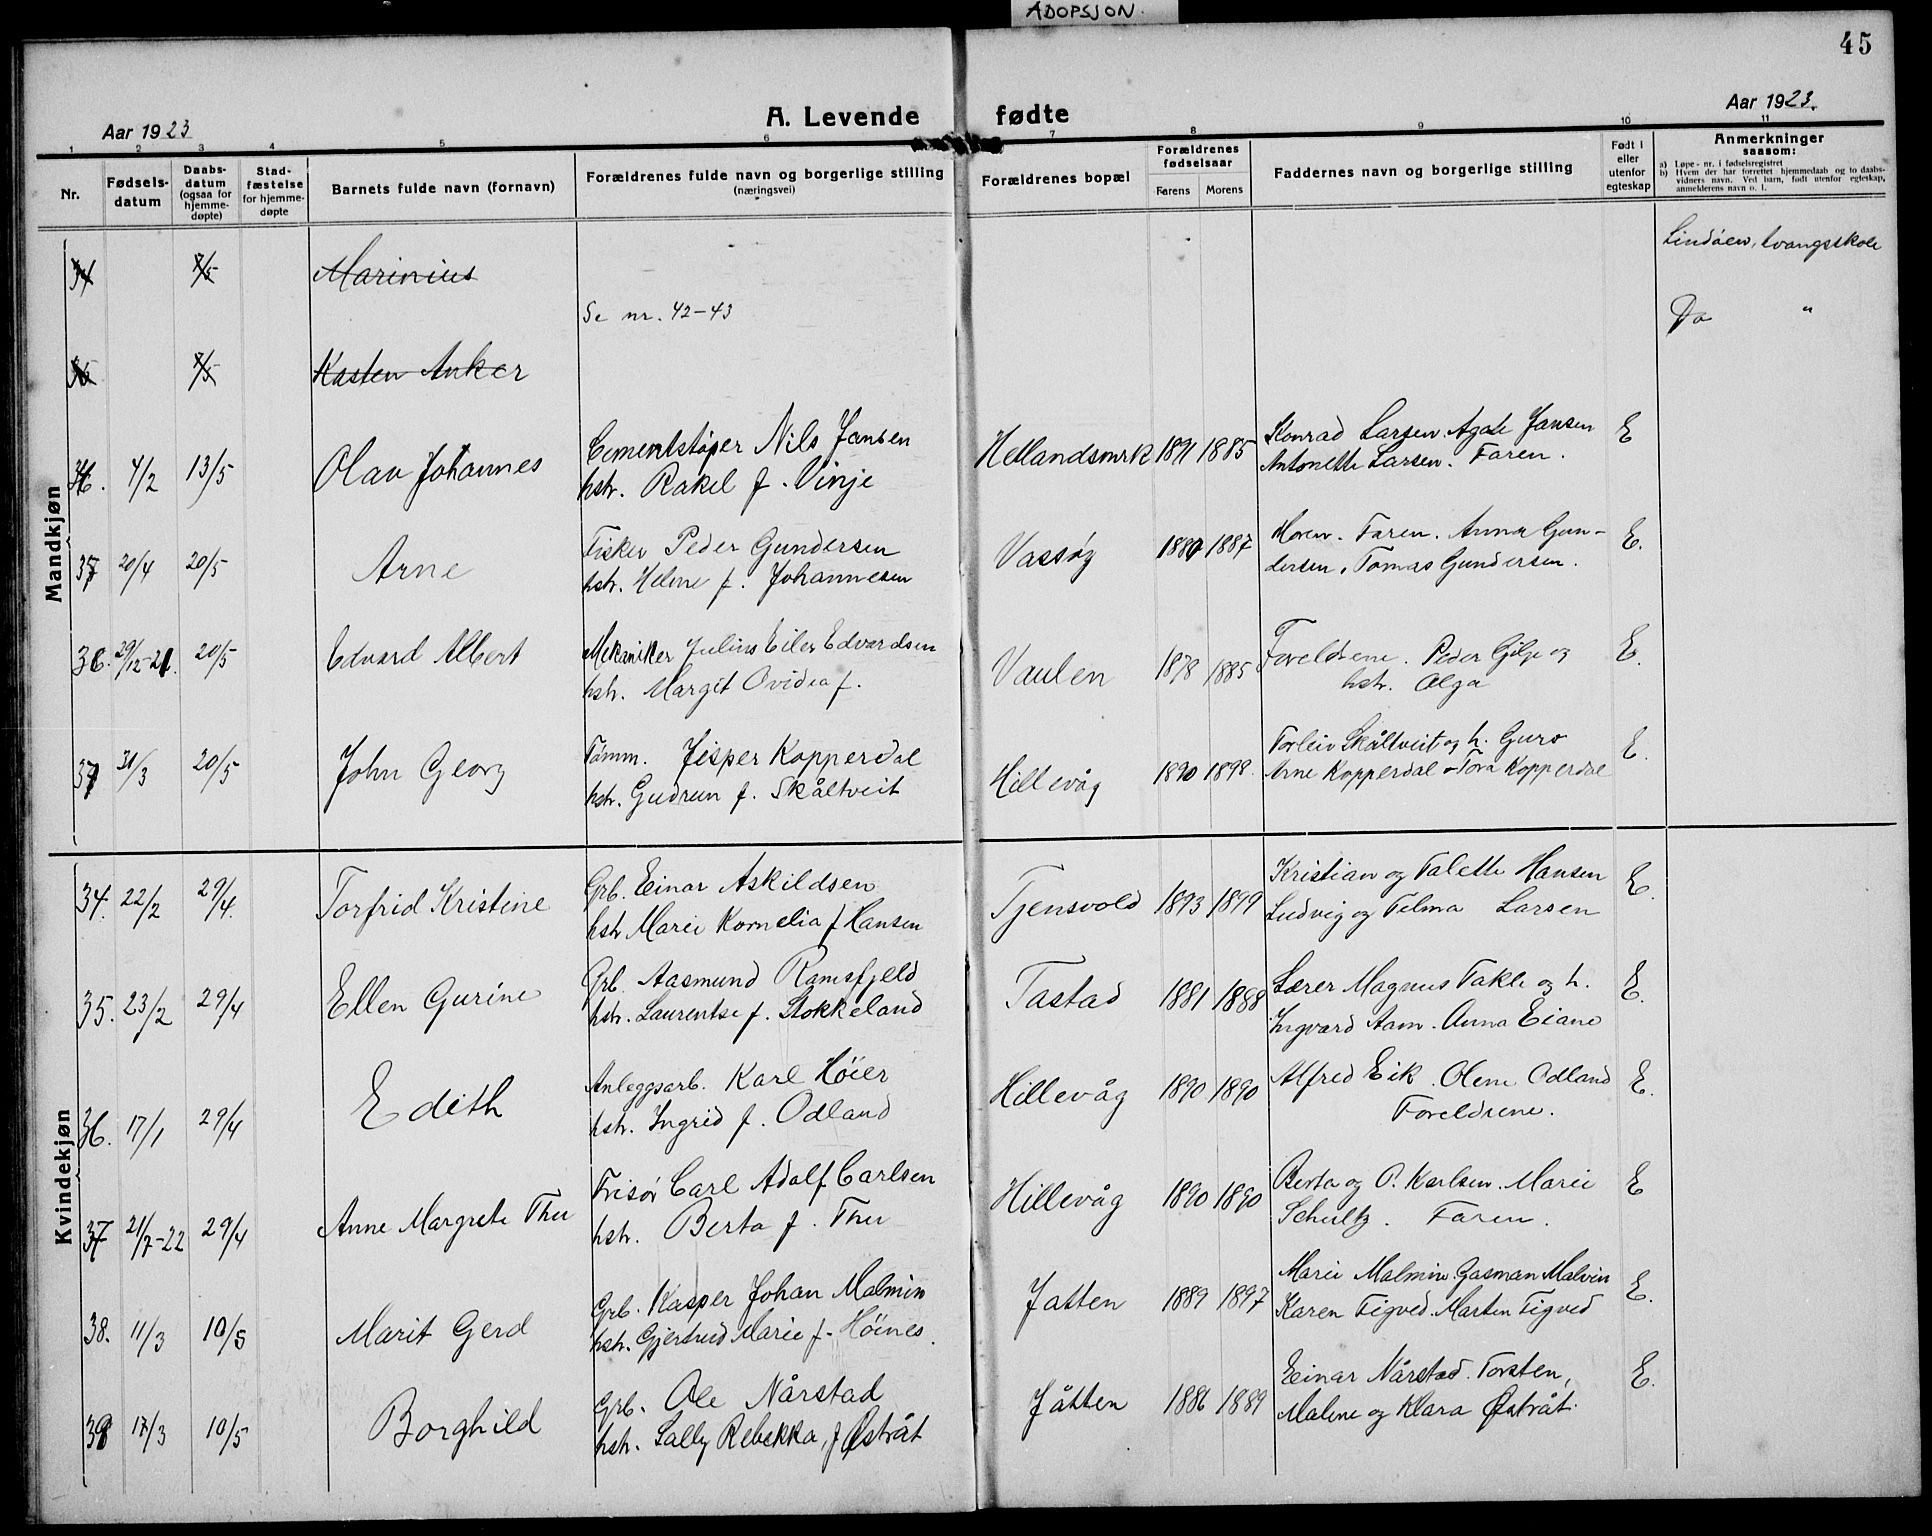 ADOPSJON.
45
Aar 1923
A. Levende fødte
Aar 1923.
1 2 3 4 5 6 7 8 9 10 11
Nr.
Fødsels-
datum
Daabs-
datum
(ogsaa for
hjemme-
døpte)
Stad-
fæstelse
for hjemme-
døpte
Barnets fulde navn (fornavn)
Forældrenes fulde navn og borgerlige stilling
(næringsvei)
Forældrenes bopæl
Forældrenes
fødselsaar
Farens Morens
Faddernes navn og borgerlige stilling
Født i
eller
utenfor
egteskap
Anmerkninger
saasom:
a) Løpe-nr. i fødselsregistret
b) Hvem der har forrettet hjemmedaab og to daabs-
vidners navn. Ved barn, født utenfor egteskap,
anmelderens navn o. l.
Mandkjøn
34 7/5 Marinius Lindøen, tvangsskole
Se nr. 42-43 Do "
35 7/5 Kasten Anker
36. 4/2 13/5 Olav Johannes
Cementstøper Nils Jansen
hstr. Rakel f. Vinje
Hellandsmrk 1891 1885
Konrad Larsen. Agate Jansen
Antonette Larsen. Faren.
E
37 20/4 20/5 Arne
Fisker Peder Gundersen
hstr. Helene f. Johannesen
Vassøy 1889 1887
Moren. Faren. Anna Gun-
dersen, Tomas Gundersen.
E.
36. 29/12-21. 20/5 Edvard Albert
Mekaniker Julius Eiler Edvardsen
hstr. Margit Ovidea f.
Vaulen 1878 1885
Foreldrene. Peder Gilje og
hstr. Olga
E.
37 31/3 20/5 John Georg
Tømm. Jesper Kopperdal
hstr. Gudrun f. Skåltveit
Hillevåg 1890 1898.
Torleiv Skåltveit og h. Guro
Arne Kopperdal - Tora Kopperdal
E.
Kvindekjøn
34. 22/2 29/4. Torfrid Kristine
Grb. Einar Askildsen
hstr Marie Kornelia f Hansen
Tjensvold 1893 1899
Kristian og Talette Hansen
Ludvig og Telma Larsen
E.
35. 23/2 29/4 Ellen Gurine
Grb. Aasmund Ramsfjeld
hstr. Laurentse f. Stokkeland
Tastad 1881 1888
Lærer Magnus Takle og h.
Ingvard Aam. Anna Eiane
E.
36. 17/1 29/4 Edith
Anleggsarb. Karl Höier
hstr. Ingrid f. Odland
Hillevåg 1890 1890
Alfred Eik. Olene Odland
Foreldrene.
E.
37 21/7-22 29/4 Anne Margrete Thu
Frisør Carl Adolf Carlsen
hstr. Berta f. Thu
Hillevåg 1890 1890
Berta og P. Karlsen. Marie
Schultz. Faren.
E
38. 11/3 10/5 Marit Gerd
Grb. Kasper Johan Malmin
hstr. Gjertrud Marie f. Höines.
Jatten 1889 1897
Marie Malmin. Gasman Malvin
Karen Tigved. Marten Tigved
E.
39 17/3 10/5 Borghild
Grb. Ole Nårstad
hstr. Sally Rebekka, f Østråt
Jåtten 1886 1889
Einar Nårstad. Torsten,
Malene og Klara Østråt.
E.